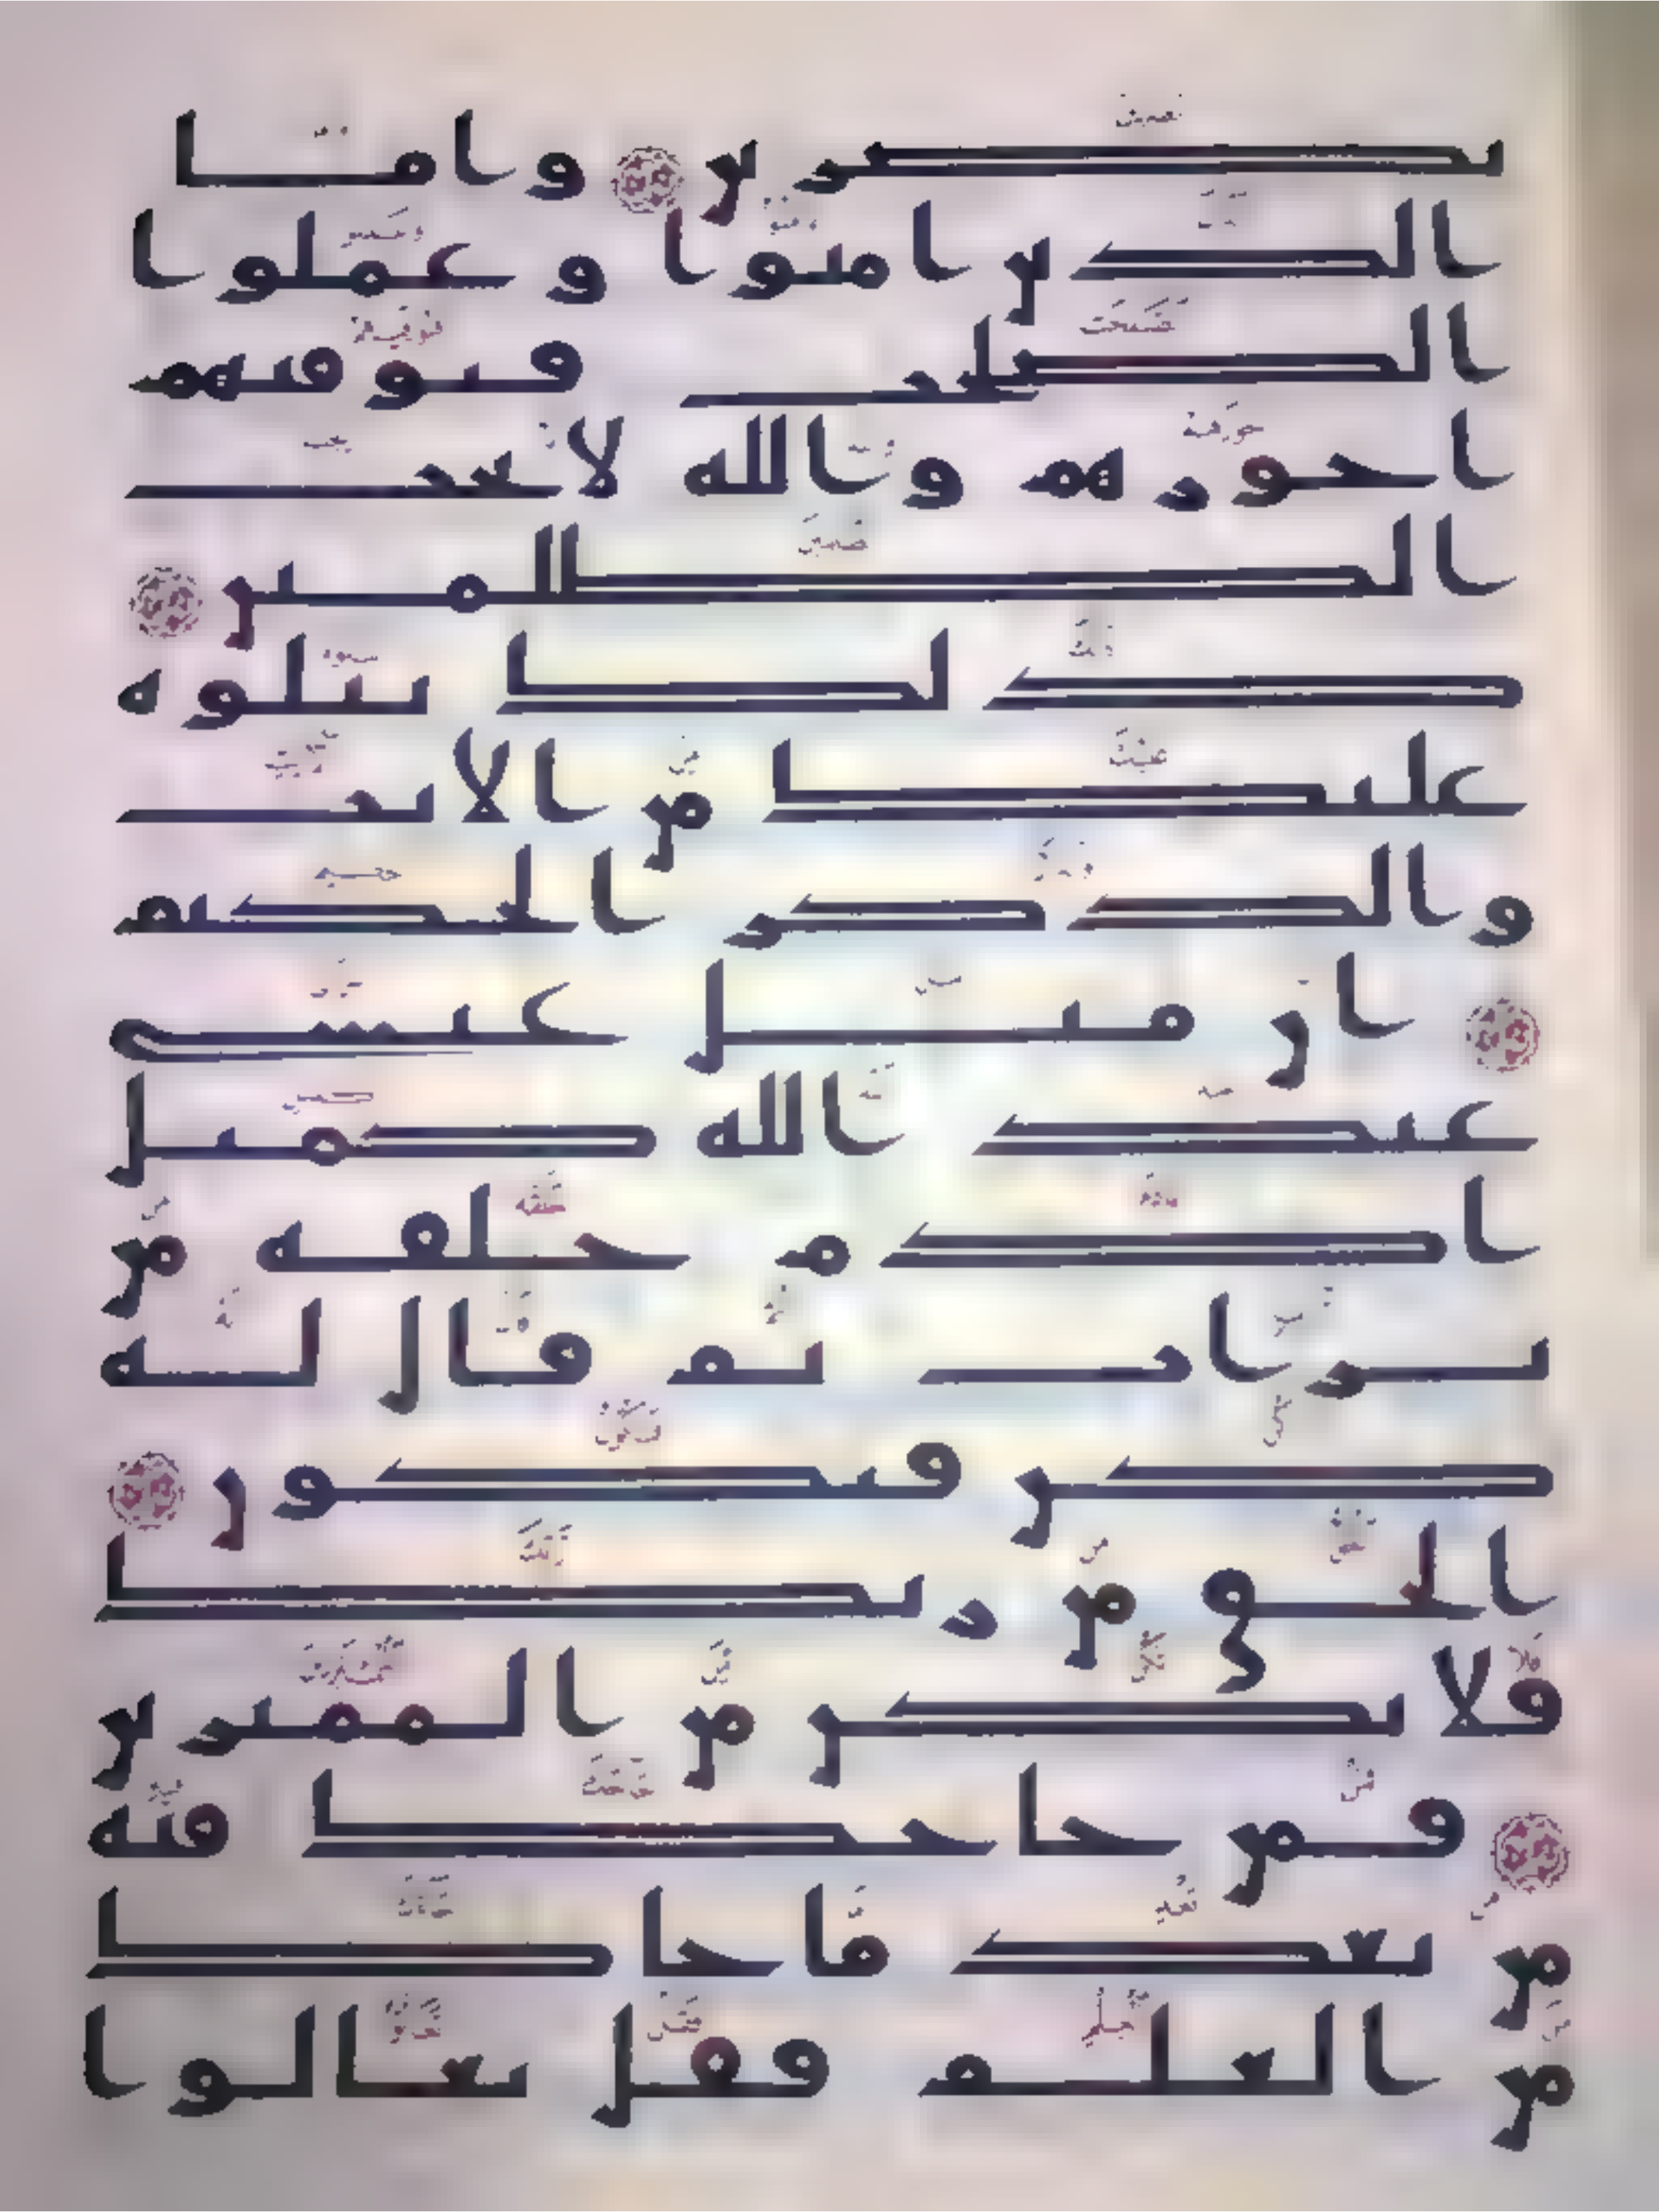 نصرين ۝ واما
الذين امنوا وعملوا
الصلحت فيوفيهم
اجورهم والله لا يحب
الظلمين ۝
ذلك نتلوه
عليك من الايت
والذكر الحكيم
۝ ان مثل عيسى
عند الله كمثل
ادم خلقه من
تراب ثم قال له
كن فيكون ۝
الحق من ربك
فلا تكن من الممترين
۝ فمن حاجك فيه
من بعد ما جاك
من العلم فقل تعالوا